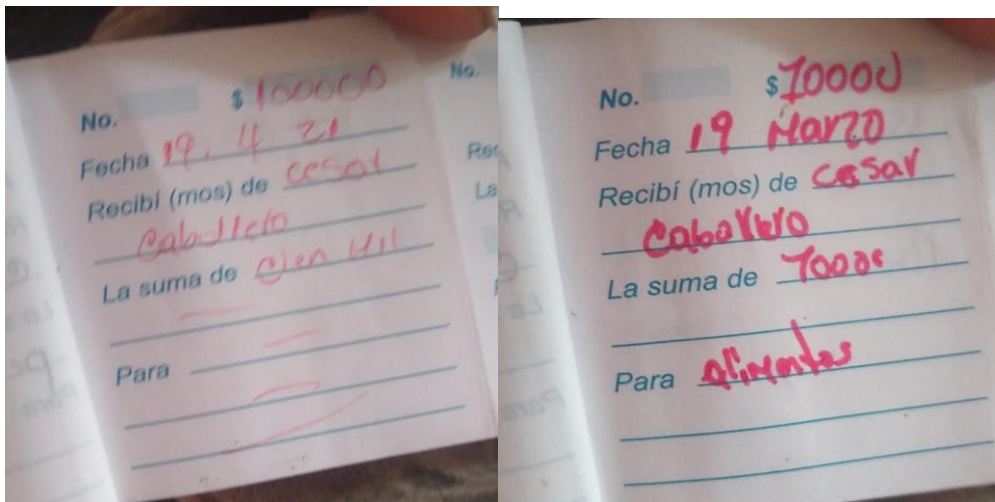 No. $ 100000
Fecha 19. 4 21
Recibí (mos) de cesar
Caballero
La suma de Cien Mil
Para
No.
Rec
La
No. $ 70000
Fecha 19 Marzo
Recibí (mos) de cesar
Caballero
La suma de 70000
Para alimentos